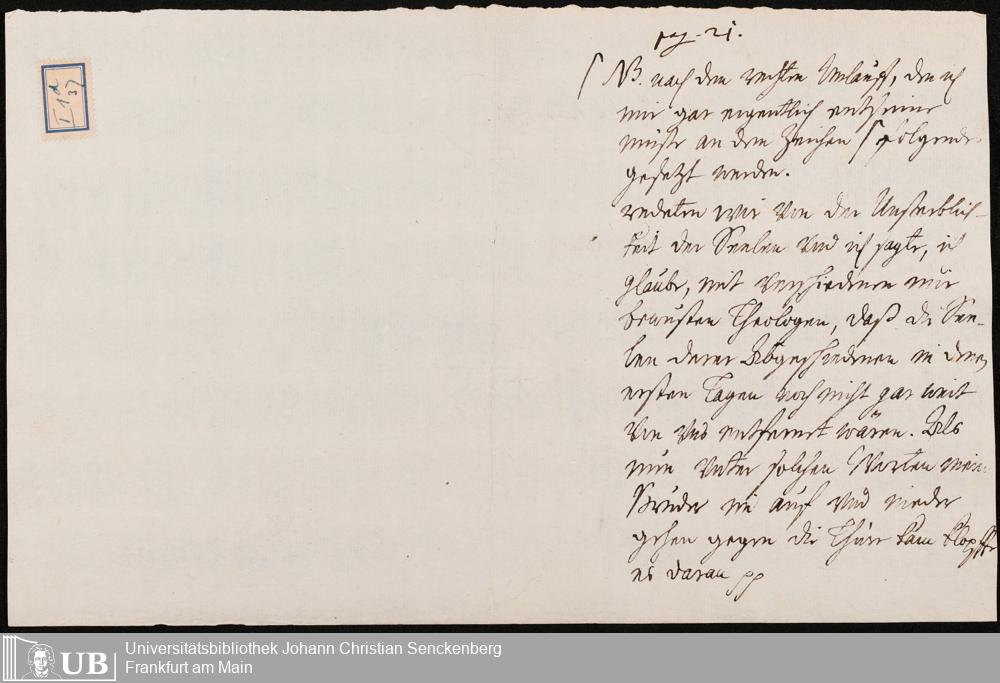 I 1 d
37
pag. 21.
⌠ NB. nach dem rechten Umlauff, den ich
mir gar eigentlich entsinne
müste an dem Zeichen ⌠ folgendes
gesetzt werden.
redeten wir von der Unsterblich-
keit der Seelen und ich sagte, ich
glaube, mit verschiedenen mir
bewusten Theologen, daß die See-
len derer Abgeschiedenen in denen
ersten Tagen noch nicht gar weit
von uns entfernt wären. Als
nun unter solchen Worten mein
Bruder im auf und nieder
gehen gegen die Thüre kam klopffte
es daran pp
UB
Universitätsbibliothek Johann Christian Senckenberg
Frankfurt am Main